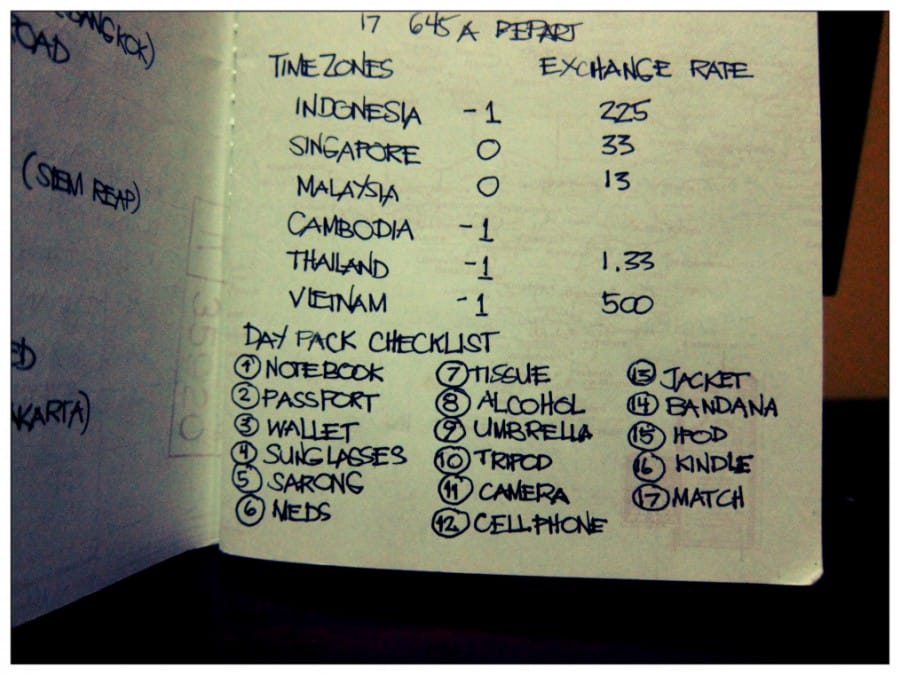 BANGKOK)
OAD
(SIEM REAP)
ED
AKARTA)
17 645 A DEPART
TIME ZONES EXCHANGE RATE
INDONESIA -1 225
SINGAPORE 0 33
MALAYSIA 0 13
CAMBODIA -1
THAILAND -1 1.33
VIETNAM -1 500
DAY PACK CHECKLIST
1 NOTEBOOK 7 TISSUE 13 JACKET
2 PASSPORT 8 ALCOHOL 14 BANDANA
3 WALLET 9 UMBRELLA 15 IPOD
4 SUNGLASSES 10 TRIPOD 16 KINDLE
5 SARONG 11 CAMERA 17 MATCH
6 MEDS 12 CELLPHONE